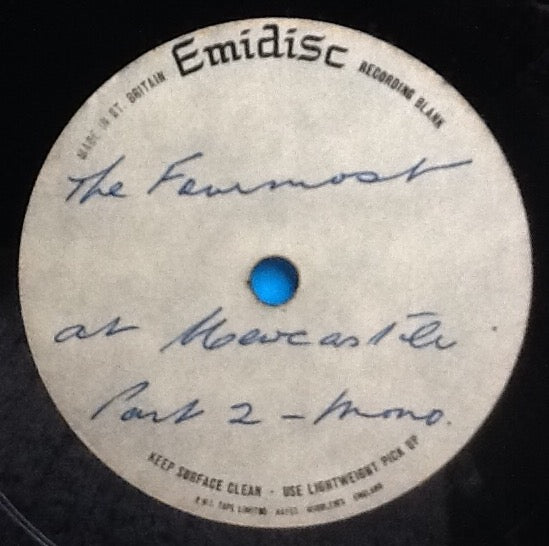 MADE IN GT. BRITAIN Emidisc RECORDING BLANK
The Fourmost
at Newcastle
Part 2 - Mono.
KEEP SURFACE CLEAN - USE LIGHTWEIGHT PICK UP
E.M.I. TAPE LIMITED HAYES MIDDLESEX ENGLAND